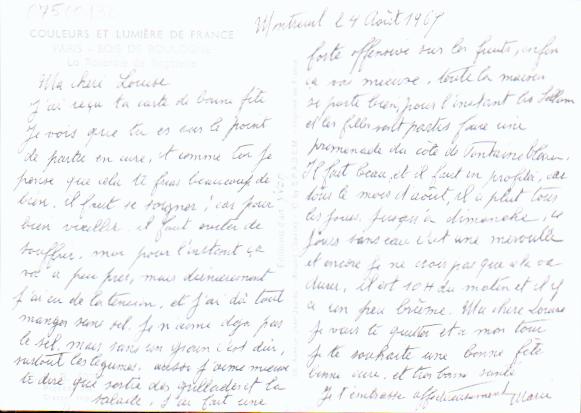 COULEURS ET LUMIÈRE DE FRANCE
PARIS - BOIS DE BOULOGNE
Montreuil 24 Août 1967
Ma chère Louise
J'ai reçu ta carte de bonne fête
Je vois que tu es sur le point
de partir en cure, et comme toi je
pense que cela te fras beaucoup de
bien. il faut se soigner, car pour
bien vieillir, il faut éviter de
souffrir, moi pour l'instant ça
va à peu près, mais dernièrement
j'ai eu de la tension, et j'ai dû tout
manger sans sel. Je n'aime déjà pas
le sel, mais sans un grain c'est dur,
surtout les légumes. aussi j'aime mieux
te dire que sortie des grillades et la
salade, j'ai fait une
forte offensive sur les fruits, enfin
ça va mieux, toute la maison
se porte bien, pour l'instant les
et les filles sont partis faire une
promenade du côté de Fontainebleau.
Il fait beau, et il faut en profiter, car
tous le mois d'août, il a plut tous
les jours. Jusqu'à dimanche, ce
jours sans eau c'est une merveille
et encore je ne crois pas que cela va
durer, il est 10H du matin et il y
a un peu brume. Ma chère Louise
Je vais te quitter et a mon tour
je te souhaite une bonne fête
bonne cure, et très bonne santé
Je t'embrasse affectueusement Marie